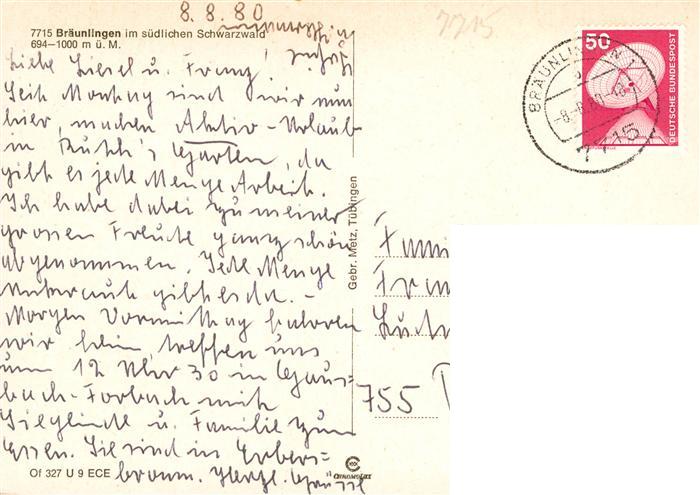 8.8.80
7715
7715 Bräunlingen im südlichen Schwarzwald
694–1000 m ü. M.
Liebe Liesel u. Franz!
Seit Montag sind wir nun
hier, machen Aktiv-Urlaub
in Garten, da
gibt es jede Menge Arbeit.
Ich habe dabei zu meiner
grossen Freude ganz schön
abgenommen. Jede Menge
Unkraut gibt es da. –
Morgen Vormittag fahren
wir heim, treffen uns
um 12 Uhr 30 in Gaus-
bach-Forbach mit
Sieglinde u. Familie zum
Essen. Sie sind in Erbers-
bronn. Herzl. Grüsse
Of 327 U 9 ECE
CHROMOLUX
Gebr. Metz, Tübingen
50
DEUTSCHE BUNDESPOST
BRÄUNLINGEN 1
7715
Fami
Fran
755